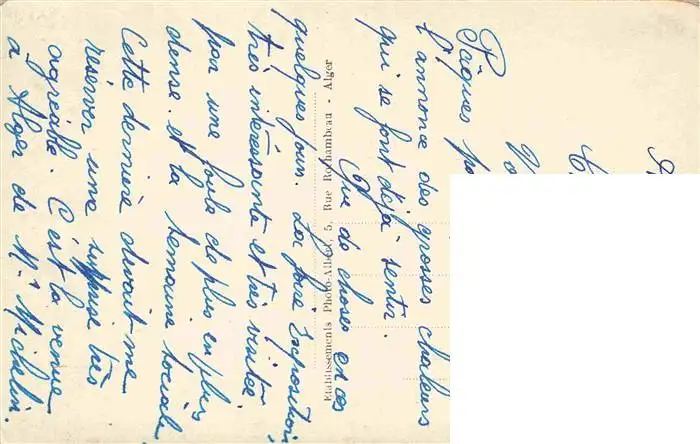 Pâques
l'annonce des grosses chaleurs
qui se font déjà sentir.
Que de choses en ces
quelques jours. La foire Exposition
très intéressante et très visitée
par une foule de plus en plus
dense. et la semaine sociale
Cette dernière devait me
réserver une surprise très
agréable. C'est la venue
à Alger de Mr Michelin.
Etablissements Photo-Albert, 5, Rue Rochambeau - Alger